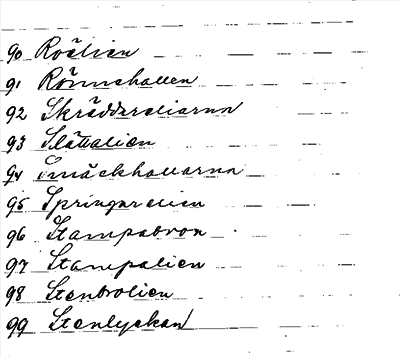 90 Roälien
91 Rönnehallen
92 Skrädderaliarna
93 Slättalien
94 Smäckhallarna
95 Springarelien
96 Stampabron
97 Stampalien
98 Stenbrolien
99 Stenlyckan